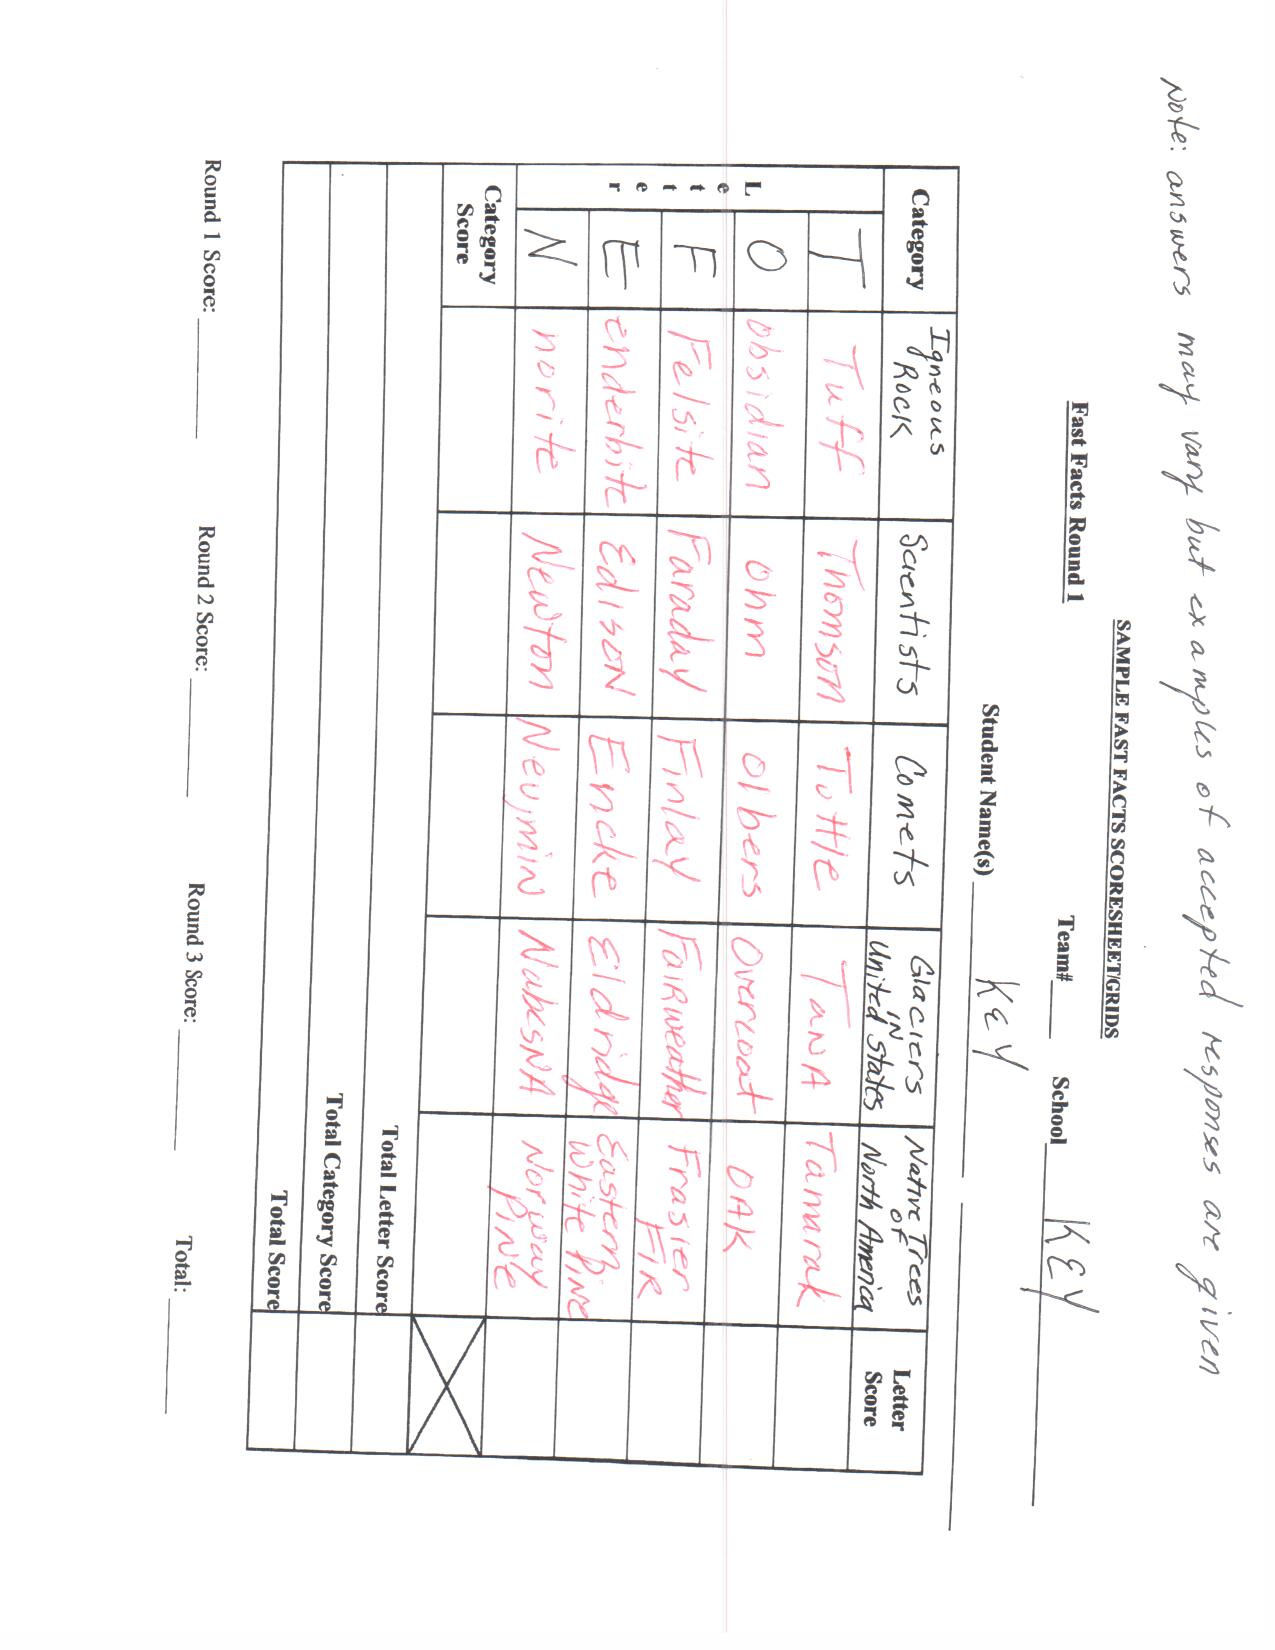 Note: answers may vary but examples of accepted responses are given
SAMPLE FAST FACTS SCORESHEET/GRIDS
Fast Facts Round 1 Team# School KEY
Student Name(s) KEY
Category Igneous Rock Scientists Comets Glaciers in United States Native Trees of North America Letter Score
Letter
T Tuff Thomson Tuttle TanA Tamarak
O obsidian ohm olbers Overcoat OAK
F Felsite Faraday Finlay FaiRweather Frasier FIR
E enderbite EdisoN Encke Eldridge Eastern White Pine
N norite Newton NeujmiN NabesNA Norway PiNE
Category Score
Total Letter Score
Total Category Score
Total Score
Round 1 Score: Round 2 Score: Round 3 Score: Total: